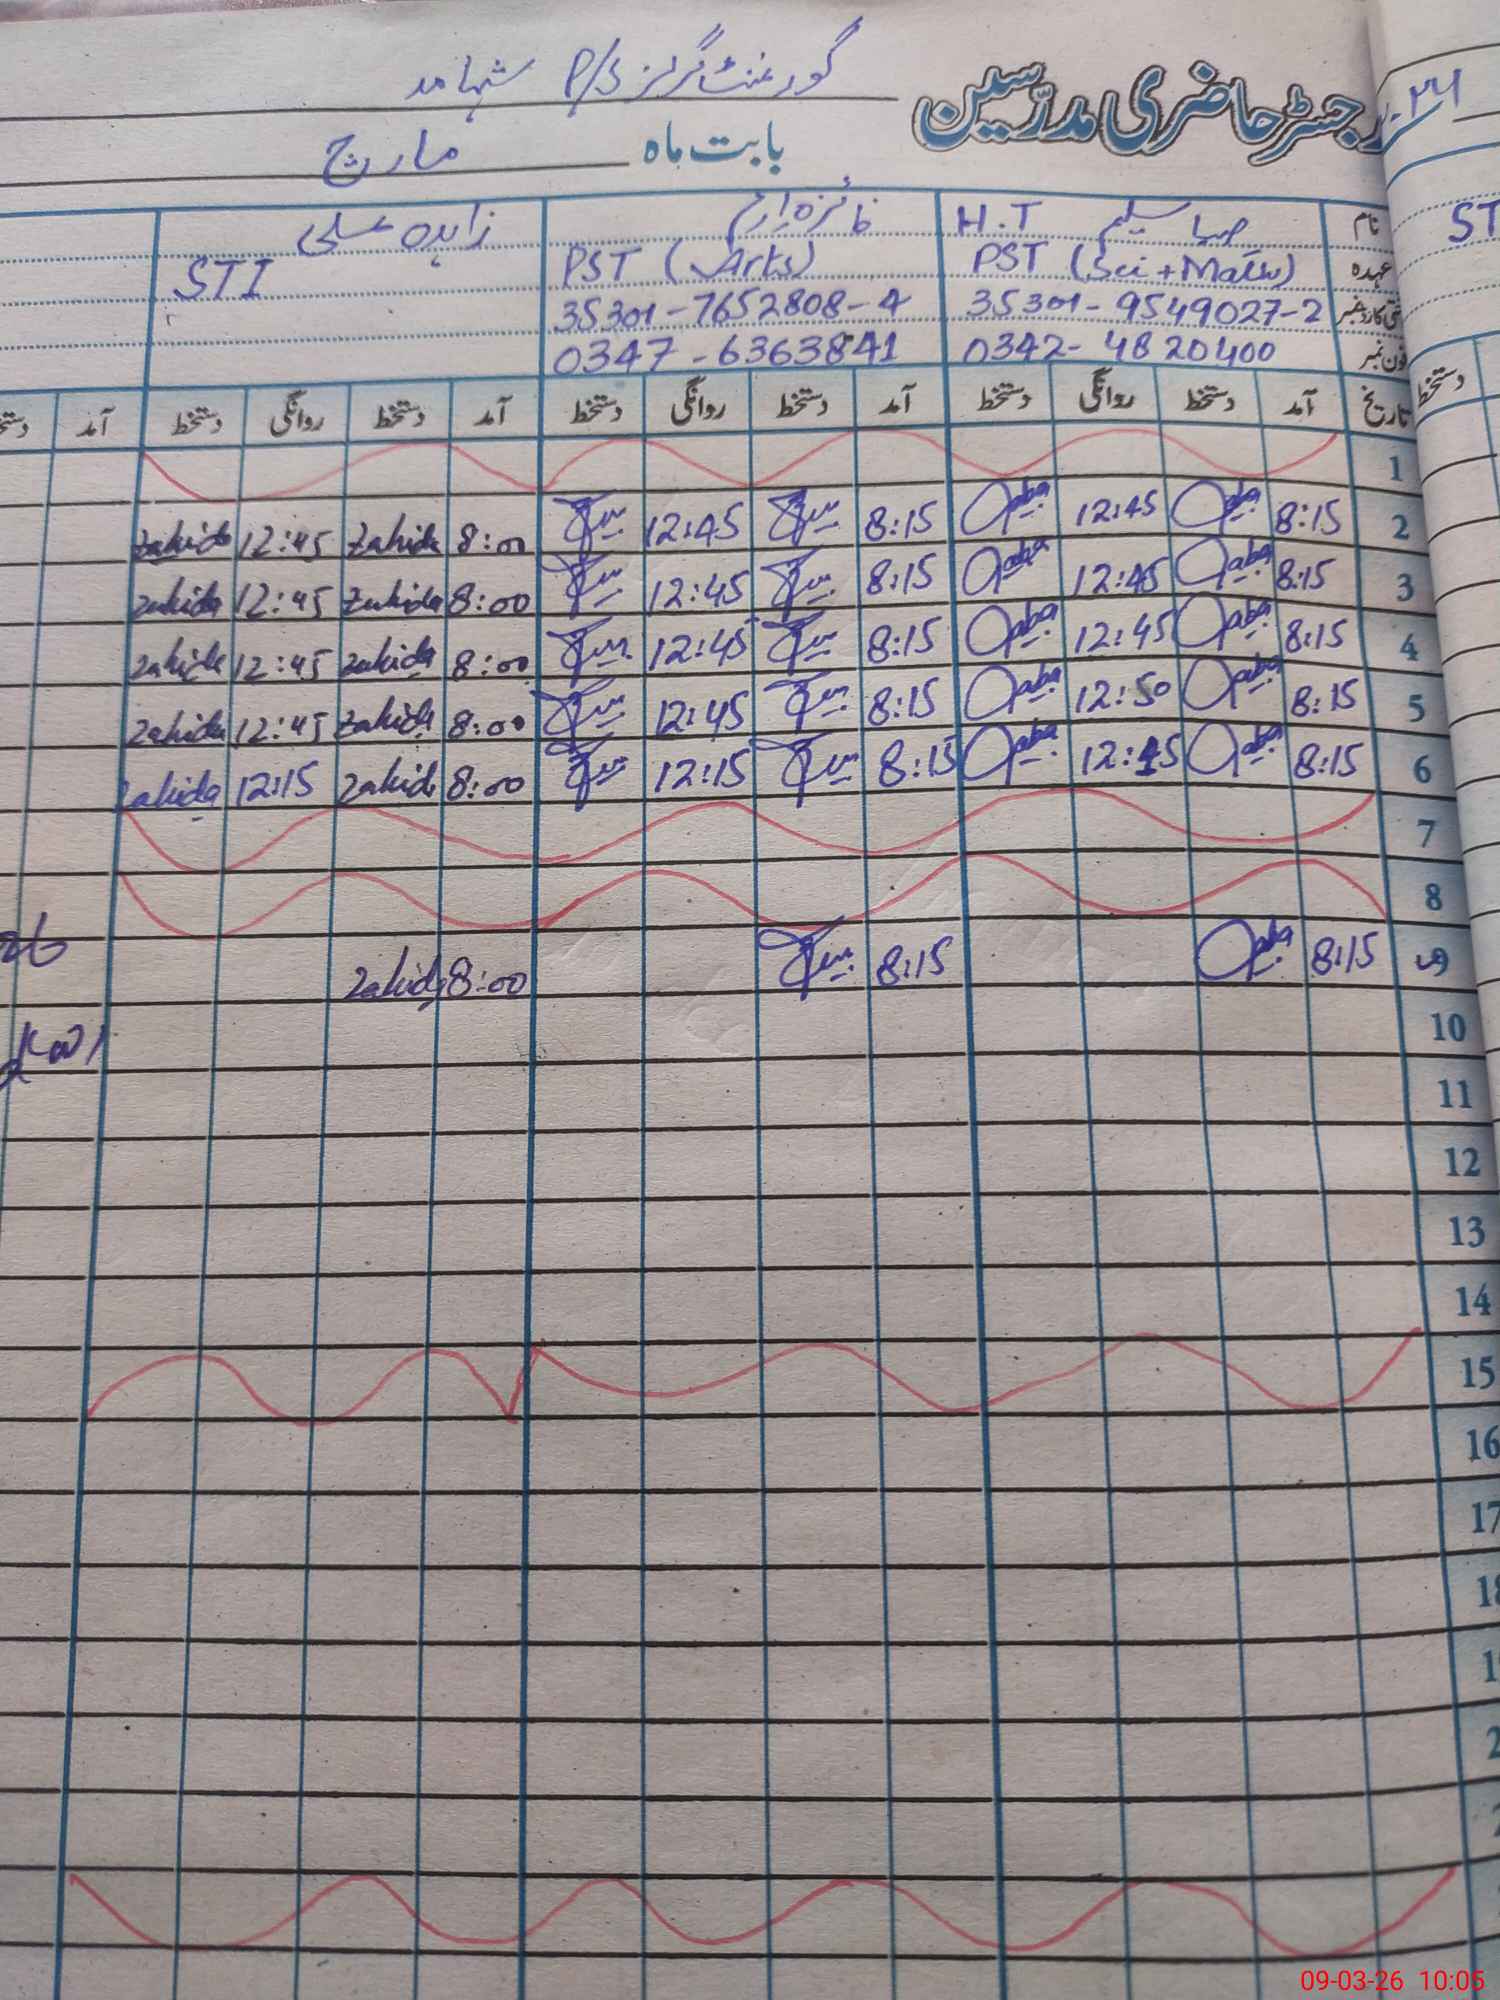 رجسٹر حاضری مدرسین گورنمنٹ گرلز P/S شہامد
بابت ماہ مارچ
نام صبا سلیم H.T فائزہ ارم زاہدہ علی
عہدہ PST (Sci + Math) PST (Arts) STI
شناختی کارڈ نمبر 35301-9549027-2 35301-7652808-4
فون نمبر 0342-4820400 0347-6363841
تاریخ آمد دستخط روانگی دستخط آمد دستخط روانگی دستخط آمد دستخط روانگی دستخط آمد
1
2 8:15 Saba 12:45 Saba 8:15 12:45 8:00 Zahida 12:45 Zahida
3 8:15 Saba 12:45 Saba 8:15 12:45 8:00 Zahida 12:45 Zahida
4 8:15 Saba 12:45 Saba 8:15 12:45 8:00 Zahida 12:45 Zahida
5 8:15 Saba 12:50 Saba 8:15 12:45 8:00 Zahida 12:45 Zahida
6 8:15 Saba 12:45 Saba 8:15 12:15 8:00 Zahida 12:15 Zahida
7
8
9 8:15 Saba 8:15 8:00 Zahida
10
11
12
13
14
15
16
17
18
09-03-26 10:05